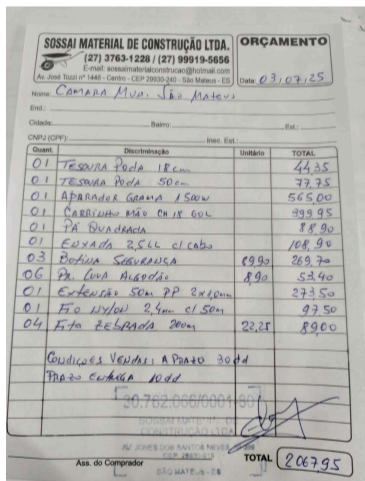 SOSSAI MATERIAL DE CONSTRUÇÃO LTDA.
(27) 3763-1228 / (27) 99919-5656
E-mail: sossaimaterialconstrucao@hotmail.com
Av. José Tozzi nº 1446 - Centro - CEP 29930-240 - São Mateus - ES
ORÇAMENTO
Data: 03,07,25
Nome: CAMARA MUN. SÃO MATEUS
End.:
Cidade: Bairro: Est.:
CNPJ (CPF): Insc. Est.:
Quant. Discriminação Unitário TOTAL
01 TESOURA PODA 18cm 44,35
01 TESOURA PODA 50cm 77,75
01 APARADOR GRAMA 1500W 565,00
01 CARRINHO MÃO CH 18 60L 399,95
01 PÁ QUADRADA 88,90
01 ENXADA 2,5LL c/ CABO 108,90
03 BOTINA SEGURANÇA 89,90 269,70
06 PR. LUVA ALGODÃO 8,90 53,40
01 EXTENSÃO 50m PP 2x1,0mm 273,50
01 FIO NYLON 2,4mm c/ 50m 97,50
04 FITA ZEBRADA 200m 22,25 89,00
CONDIÇOES VENDAS: A PRAZO 30dd
PRAZO ENTREGA 10dd
20.762.006/0001-90
SOSSAI MATERIAL DE
CONSTRUÇÃO LTDA
AV. JONES DOS SANTOS NEVES
SÃO MATEUS - ES
Ass. do Comprador
TOTAL 2067,95